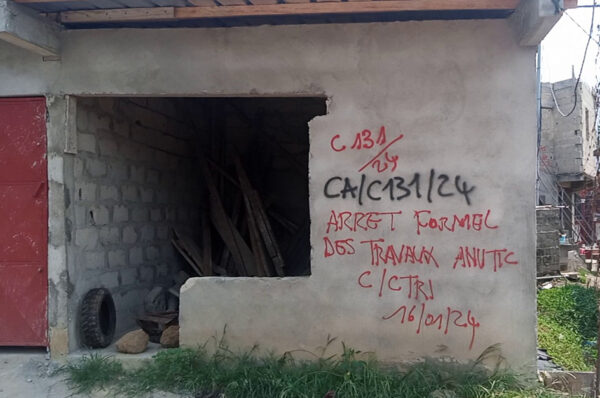 C 131/24
CA/C131/24
ARRET FORMEL
DES TRAVAUX ANUTTC
C/CTRI
16/01/24